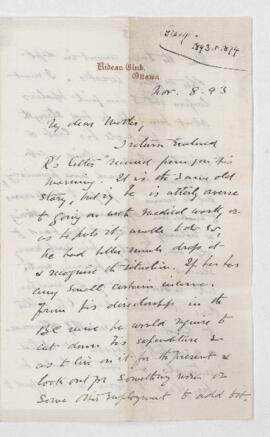 1893-1894
Rideau Club,
Ottawa.
Nov. 8. 93
My dear Mother,
I return enclosed
R's letter received from you this
morning. It is the same old
story, but if he is utterly averse
to going on with medical work, or
as he puts it, unable to do so,
he had better much drop it
& recognise the situation. If he has
any small certain income
from his directorship in the
BC mine he would require to
cut down his expenditure so
as to live on it for the present &
look out for something more or
some other employment to add to it.